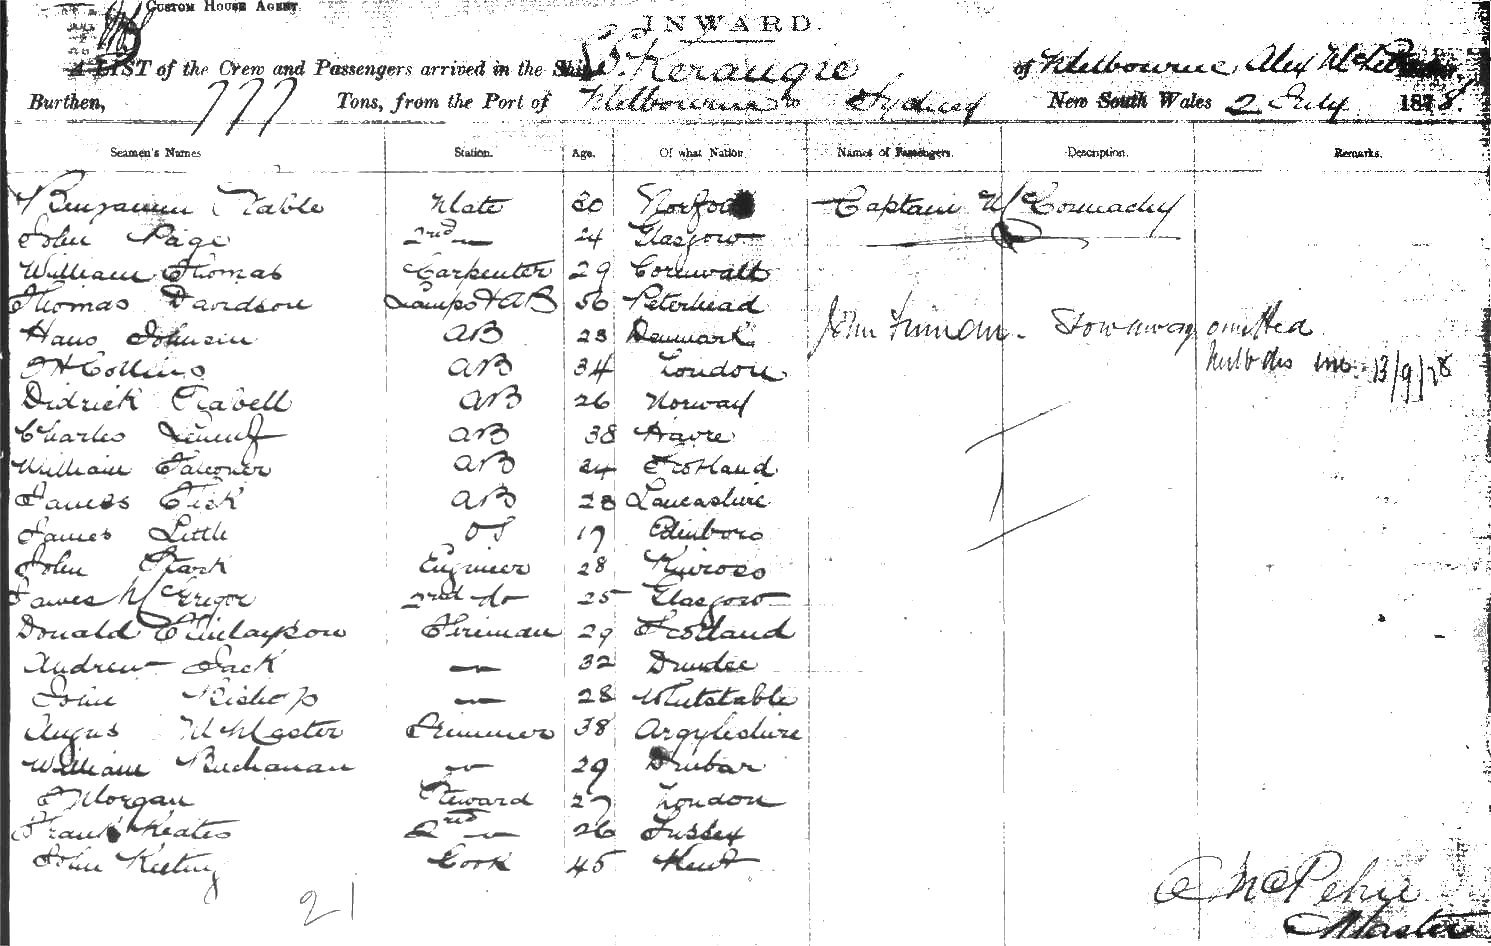 CUSTOM HOUSE AGENT.
INWARD.
A LIST of the Crew and Passengers arrived in the Ship SS. Keraugie of Melbourne, Alex McPetrie Master,
Burthen, 777 Tons, from the Port of Melbourne to Sydney New South Wales 2 July 1878.
Seamen's Names Station. Age. Of what Nation. Names of Passengers. Description. Remarks.
Benjamin Stable Mate 30 Norfolk Captain McConnachy
John Page 2nd — 24 Glasgow
William Thomas Carpenter 29 Cornwall
Thomas Davidson Lamps & AB 56 Peterhead
Hans Johnsen AB 23 Denmark John Finnan. Stowaway omitted
H Collins AB 34 London 13/9/78
Didrick AB 26 Norway
Charles AB 38 Havre
William Falconer AB 24 Scotland
James Fick AB 28 Lancashire
James Little OS 19 Edinboro
John Stark Engineer 28 Kinross
James McGregor 2nd do 25 Glasgow
Donald Finlayson Fireman 29 Scotland
Andrew Jack — 32 Dundee
John Bishop — 28 Whitstable
Angus McMaster Trimmer 38 Argyleshire
William Buchanan — 29 Dunbar
Morgan Steward 27 London
Frank Keates 2nd — 26 Sussex
John Keeting Cook 45 Kent
21
A McPetrie
Master